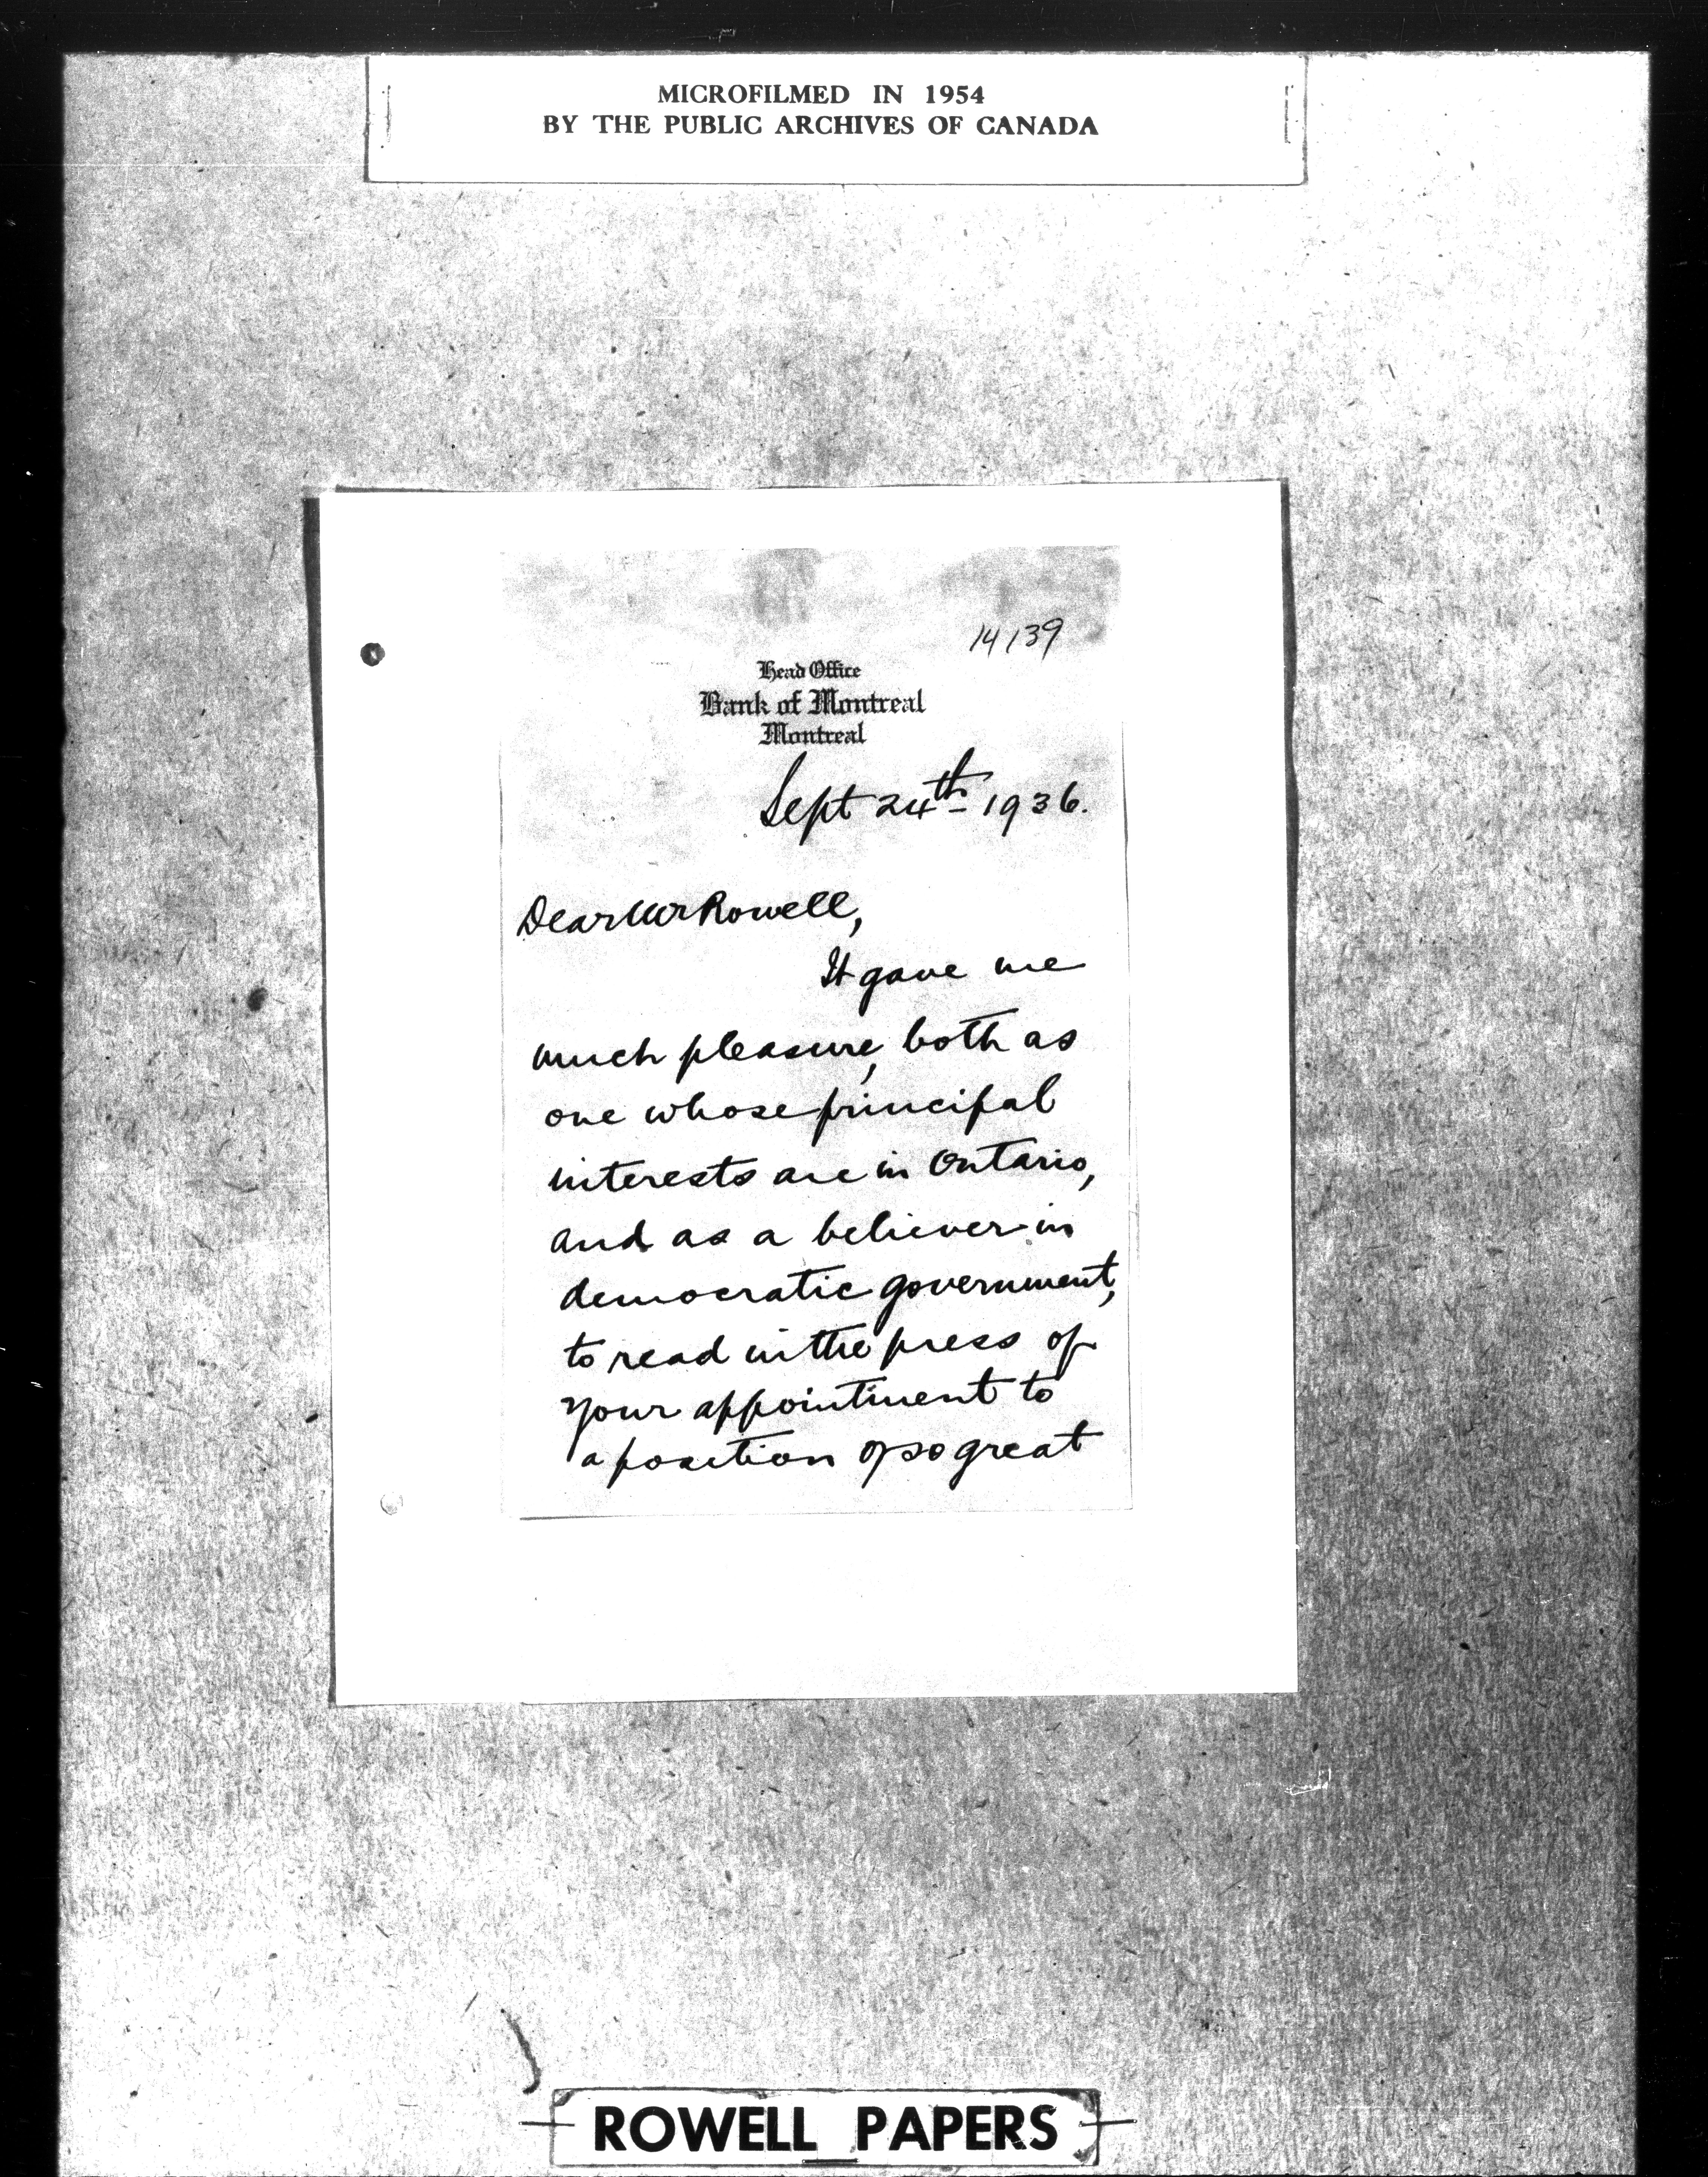 MICROFILMED IN 1954
BY THE PUBLIC ARCHIVES OF CANADA
14139
Head Office
Bank of Montreal
Montreal
Sept 24th 1936.
Dear Mr Rowell,
It gave me
much pleasure, both as
one whose principal
interests are in Ontario,
and as a believer in
democratic government,
to read in the press of
your appointment to
a position of so great
ROWELL PAPERS